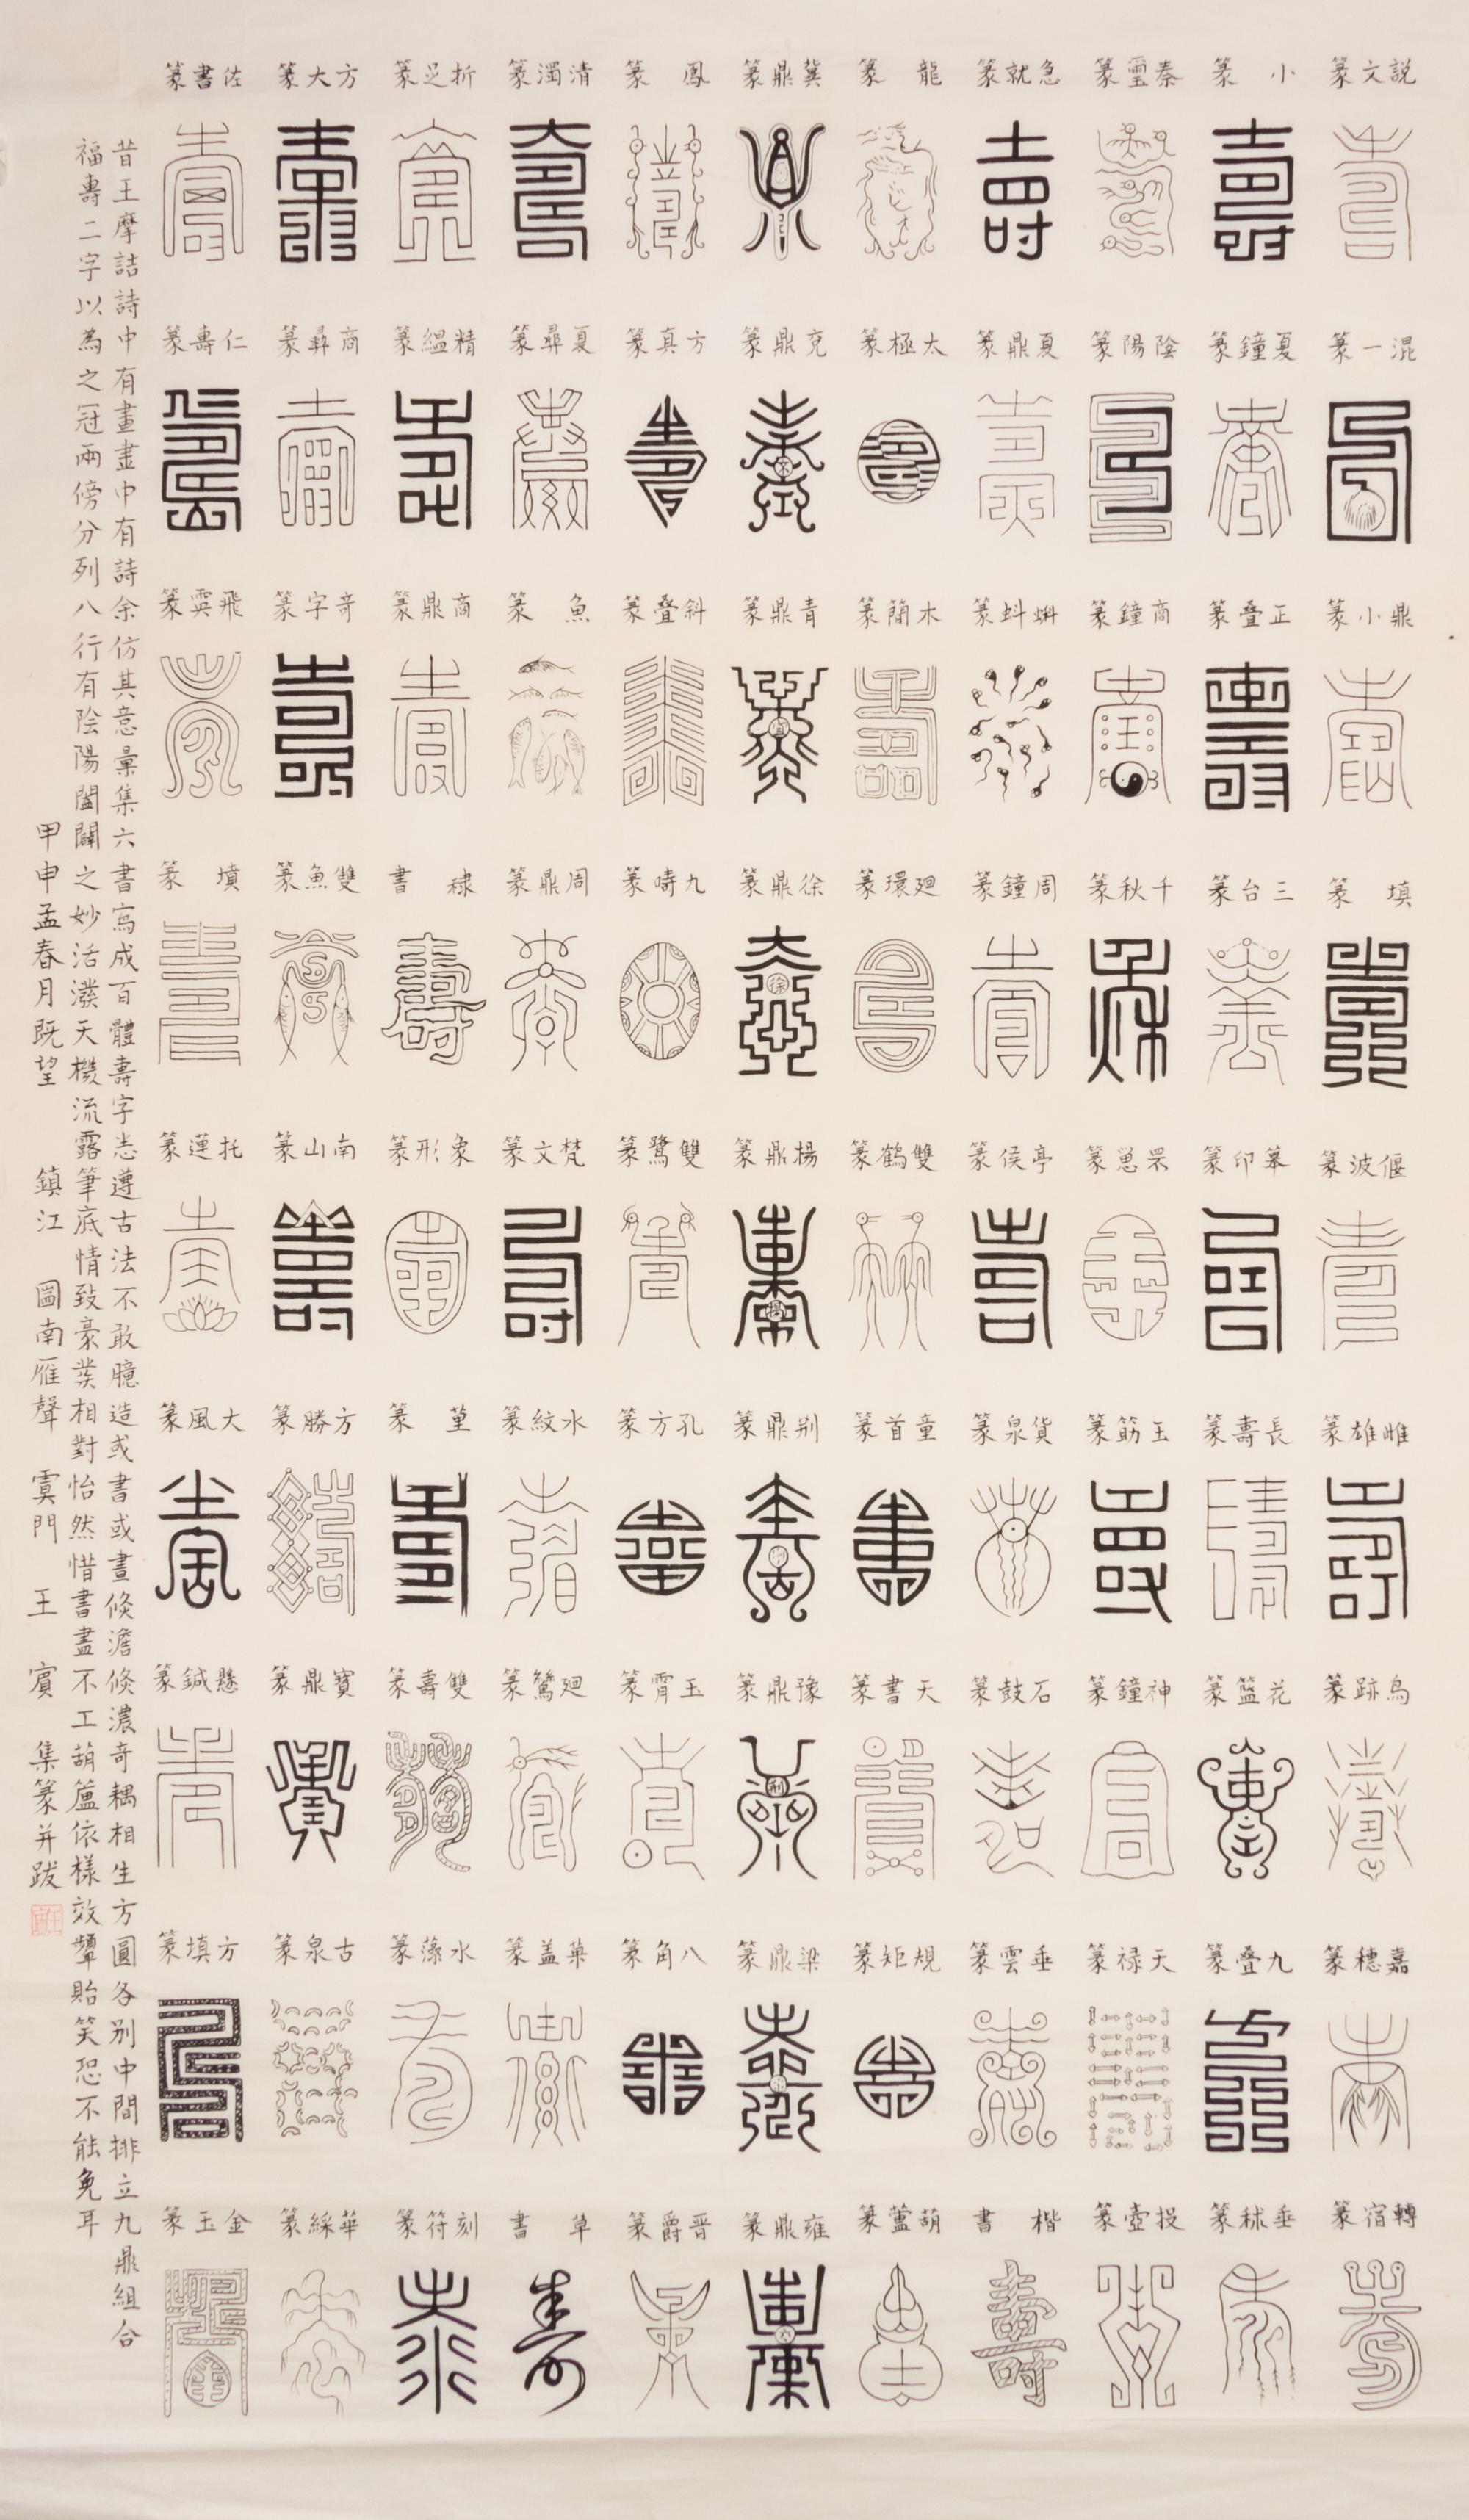 説文篆
小篆
秦璽篆
急就篆
龍篆
冀鼎篆
鳳篆
清濁篆
折足篆
方大篆
佐書篆
混一篆
夏鐘篆
陰陽篆
夏鼎篆
太極篆
兗鼎篆
方真篆
夏彝篆
精縕篆
商彝篆
仁壽篆
鼎小篆
正叠篆
商鐘篆
蝌蚪篆
木簡篆
青鼎篆
斜叠篆
魚篆
商鼎篆
奇字篆
飛霙篆
填篆
三台篆
千秋篆
周鐘篆
廻環篆
徐鼎篆
九疇篆
周鼎篆
隸書
雙魚篆
墳篆
偃波篆
印篆
罘罳篆
亭侯篆
雙鶴篆
楊鼎篆
雙鷺篆
梵文篆
象形篆
南山篆
托蓮篆
雌雄篆
長壽篆
玉筯篆
貨泉篆
童首篆
荆鼎篆
孔方篆
水紋篆
篆
方勝篆
大風篆
鳥跡篆
花籃篆
神鐘篆
石鼓篆
天書篆
豫鼎篆
玉霄篆
廻鸞篆
雙壽篆
寶鼎篆
懸鍼篆
嘉穗篆
九叠篆
天禄篆
垂雲篆
規矩篆
梁鼎篆
八角篆
盖篆
水藻篆
古泉篆
方填篆
轉宿篆
垂秫篆
投壺篆
楷書
葫蘆篆
雍鼎篆
晋爵篆
草書
刻符篆
華綵篆
金玉篆
昔王摩詰詩中有畫畫中有詩余仿其意彙集六書寫成百體壽字悉遵古法不敢臆造或書或畫倏澹倏濃奇耦相生方圓各别中間排立九鼎組合
福壽二字以為之冠兩傍分列八行有陰陽闔闢之妙活潑天機流露筆底情致豪業相對怡然惜書畫不工葫蘆依樣效顰貽笑恐不能免耳
甲申孟春月既望 鎮江 圖南雁聲 虞門 王 賓 集篆并跋